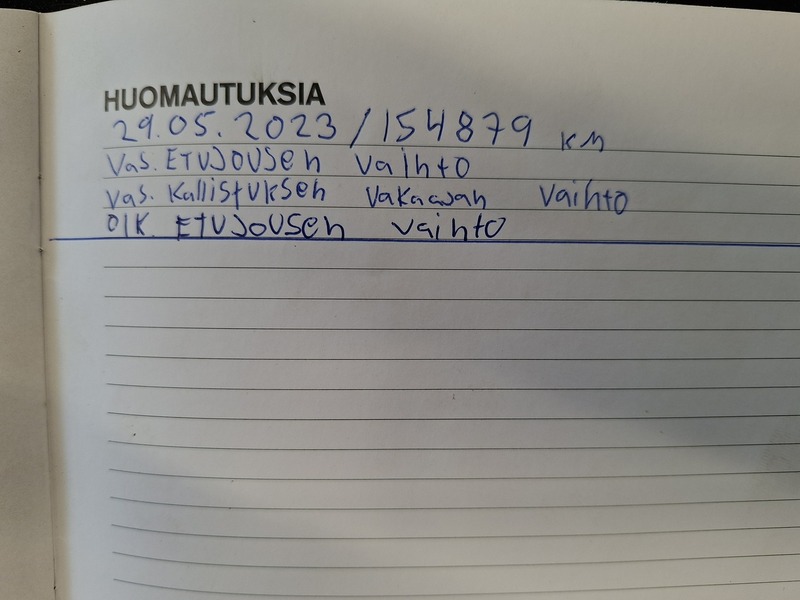 HUOMAUTUKSIA
29.05.2023 / 154879 KM
Vas. ETUJOUSEN vaihto
Vas. Kallistuksen vakaajan vaihto
OIK. ETUJOUSEN vaihto